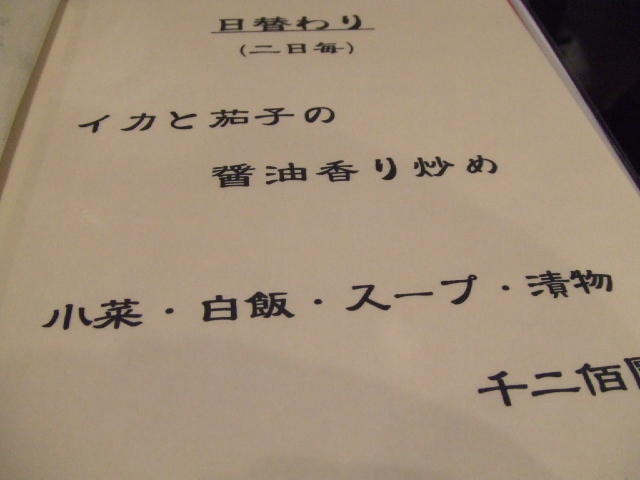 日替わり
(二日毎)
イカと茄子の
醤油香り炒め
小菜・白飯・スープ・漬物
千二佰